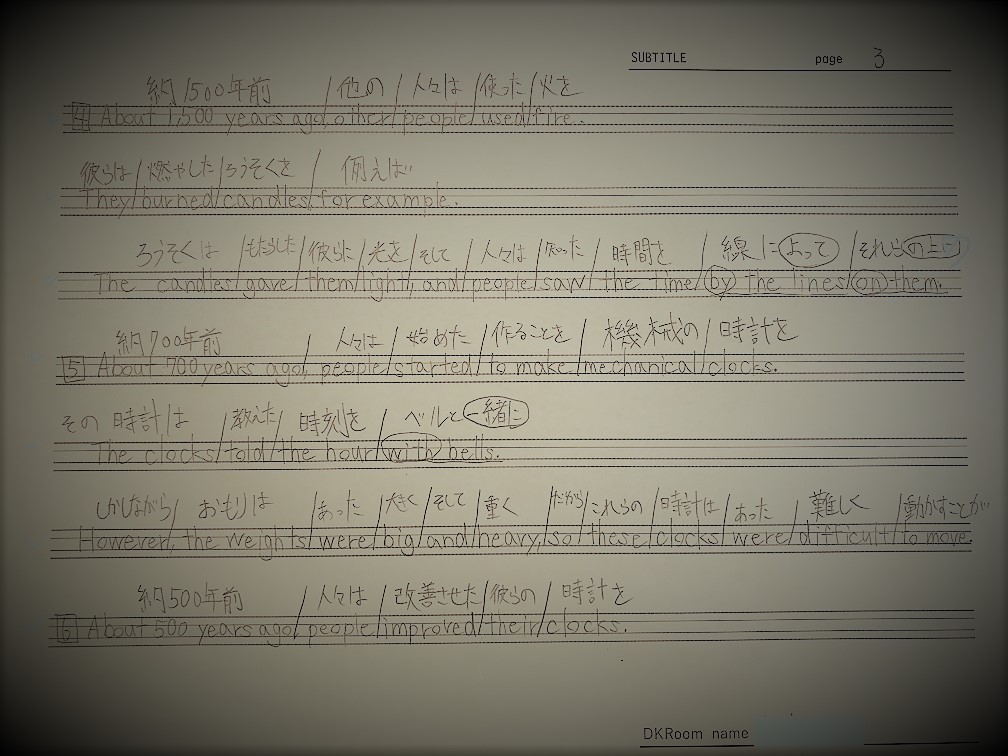 SUBTITLE page 3
約1500年前 / 他の / 人々は / 使った / 火を
4 About 1,500 years ago, other / people / used / fire.
彼らは / 燃やした / ろうそくを / 例えば
They / burned / candles / for example.
ろうそくは / もたらした / 彼らに / 光を / そして / 人々は / 知った / 時間を / 線によって / それらの上の
The candles / gave / them / light, and / people / saw / the time / by the lines / on them.
約700年前 / 人々は / 始めた / 作ることを / 機械の / 時計を
5 About 700 years ago, people / started / to make / mechanical / clocks.
その時計は / 教えた / 時刻を / ベルと一緒に
The clocks / told / the hour / with bells.
しかしながら / おもりは / あった / 大きく / そして / 重く だから / これらの / 時計は / あった / 難しく 動かすことが
However, the weights / were / big / and / heavy, so / these / clocks / were / difficult / to move.
約500年前 / 人々は / 改善させた / 彼らの / 時計を
6 About 500 years ago, people / improved / their / clocks.
DKRoom name